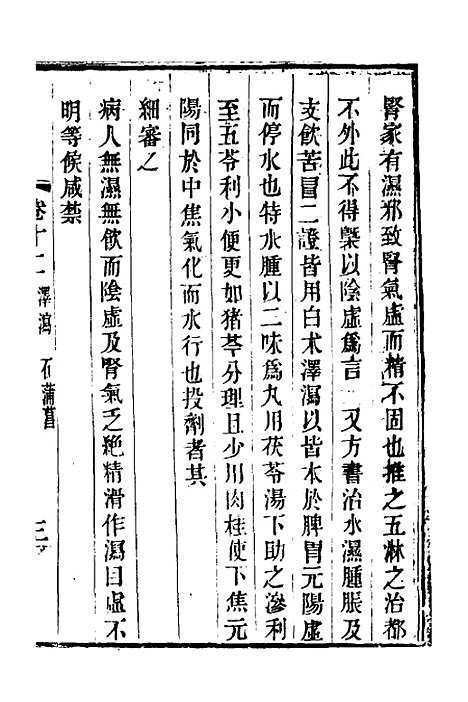 腎家有濕邪致腎氣虛而精不固也推之五淋之治都
不外此不得槩以陰虛爲言　又方書治水濕腫脹及
支飲苦冒二證皆用白术澤瀉以皆本於脾胃元陽虛
而停水也特水腫以二味爲丸用茯苓湯下助之滲利
至五苓利小便更如猪苓分理且少用肉桂使下焦元
陽同於中焦氣化而水行也投劑者其
細審之
病人無濕無飲而陰虛及腎氣乏絶精滑作瀉目虛不
明等候咸禁
卷十二　澤瀉　石菖蒲　三